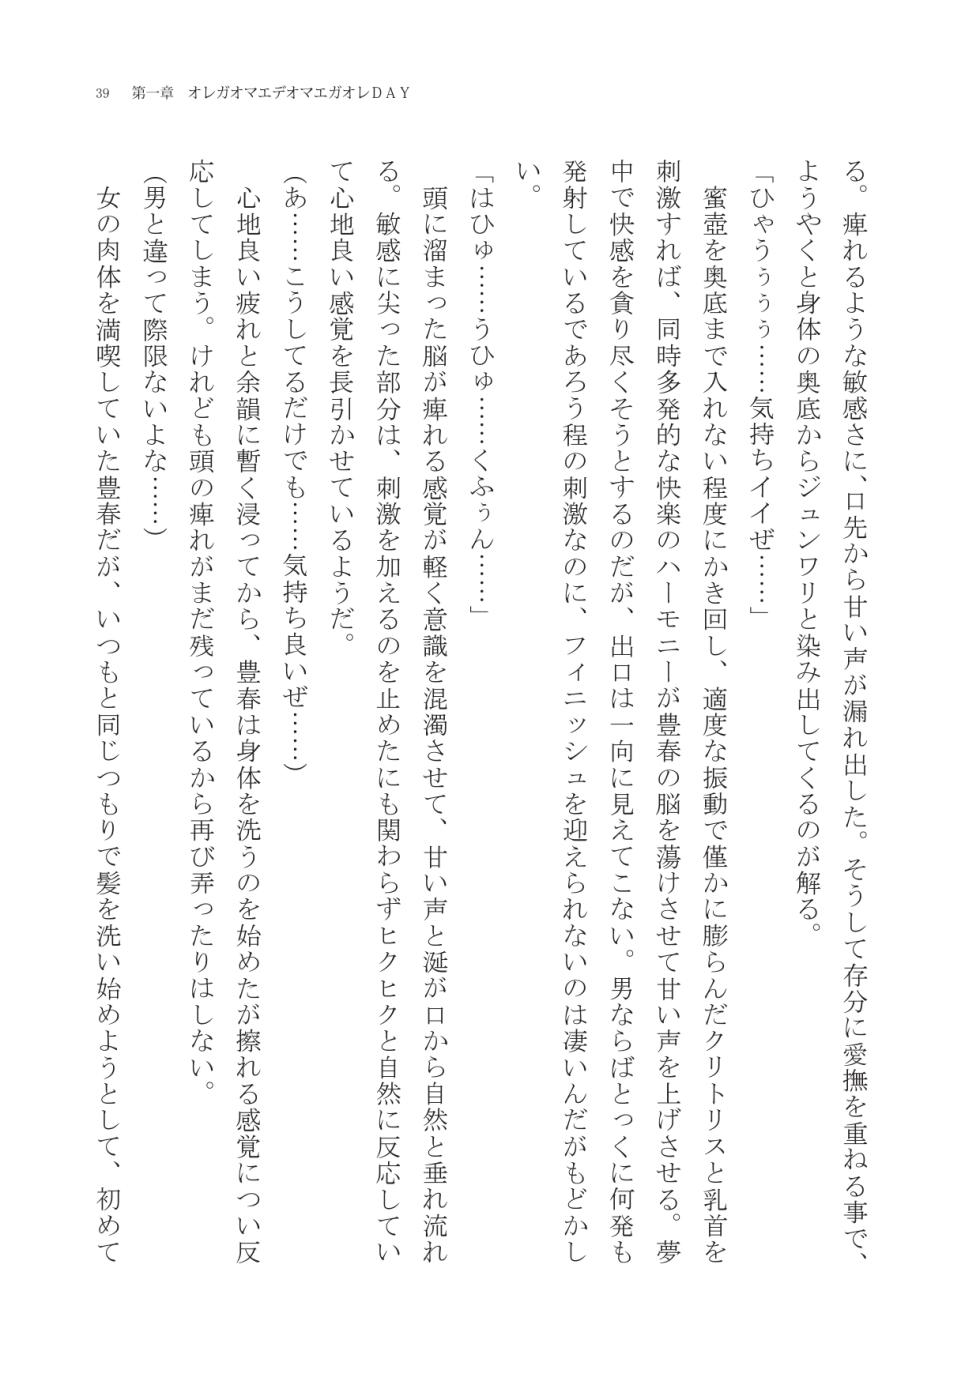 39　第一章　オレガオマエデオマエガオレＤＡＹ
る。痺れるような敏感さに、口先から甘い声が漏れ出した。そうして存分に愛撫を重ねる事で、
ようやくと身体の奥底からジュンワリと染み出してくるのが解る。
「ひゃうぅぅぅ……気持ちイイぜ……」
　蜜壺を奥底まで入れない程度にかき回し、適度な振動で僅かに膨らんだクリトリスと乳首を
刺激すれば、同時多発的な快楽のハーモニーが豊春の脳を蕩けさせて甘い声を上げさせる。夢
中で快感を貪り尽くそうとするのだが、出口は一向に見えてこない。男ならばとっくに何発も
発射しているであろう程の刺激なのに、フィニッシュを迎えられないのは凄いんだがもどかし
い。
「はひゅ……うひゅ……くふぅん……」
　頭に溜まった脳が痺れる感覚が軽く意識を混濁させて、甘い声と涎が口から自然と垂れ流れ
る。敏感に尖った部分は、刺激を加えるのを止めたにも関わらずヒクヒクと自然に反応してい
て心地良い感覚を長引かせているようだ。
（あ……こうしてるだけでも……気持ち良いぜ……）
　心地良い疲れと余韻に暫く浸ってから、豊春は身体を洗うのを始めたが擦れる感覚につい反
応してしまう。けれども頭の痺れがまだ残っているから再び弄ったりはしない。
（男と違って際限ないよな……）
　女の肉体を満喫していた豊春だが、いつもと同じつもりで髪を洗い始めようとして、初めて